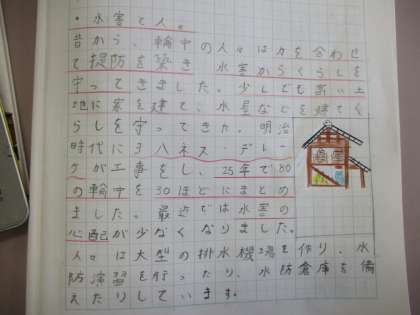 ・水害と人。
昔から、輪中の人々は力を合わせ
て堤防を築き、水害からくらしを
守ってきました。少しでも高い土
地に家を建て、水屋などを建てく
らしを守ってきた。明治
時代にヨハネス・デレー
ケが工事をし、25年で80
の輪中を30ほどにまとめ
ました。最近では水害の
心配が少なくなりました。
人々は大型の排水機場を作り、水
防演習を行ったり、水防倉庫を備
えたりしています。